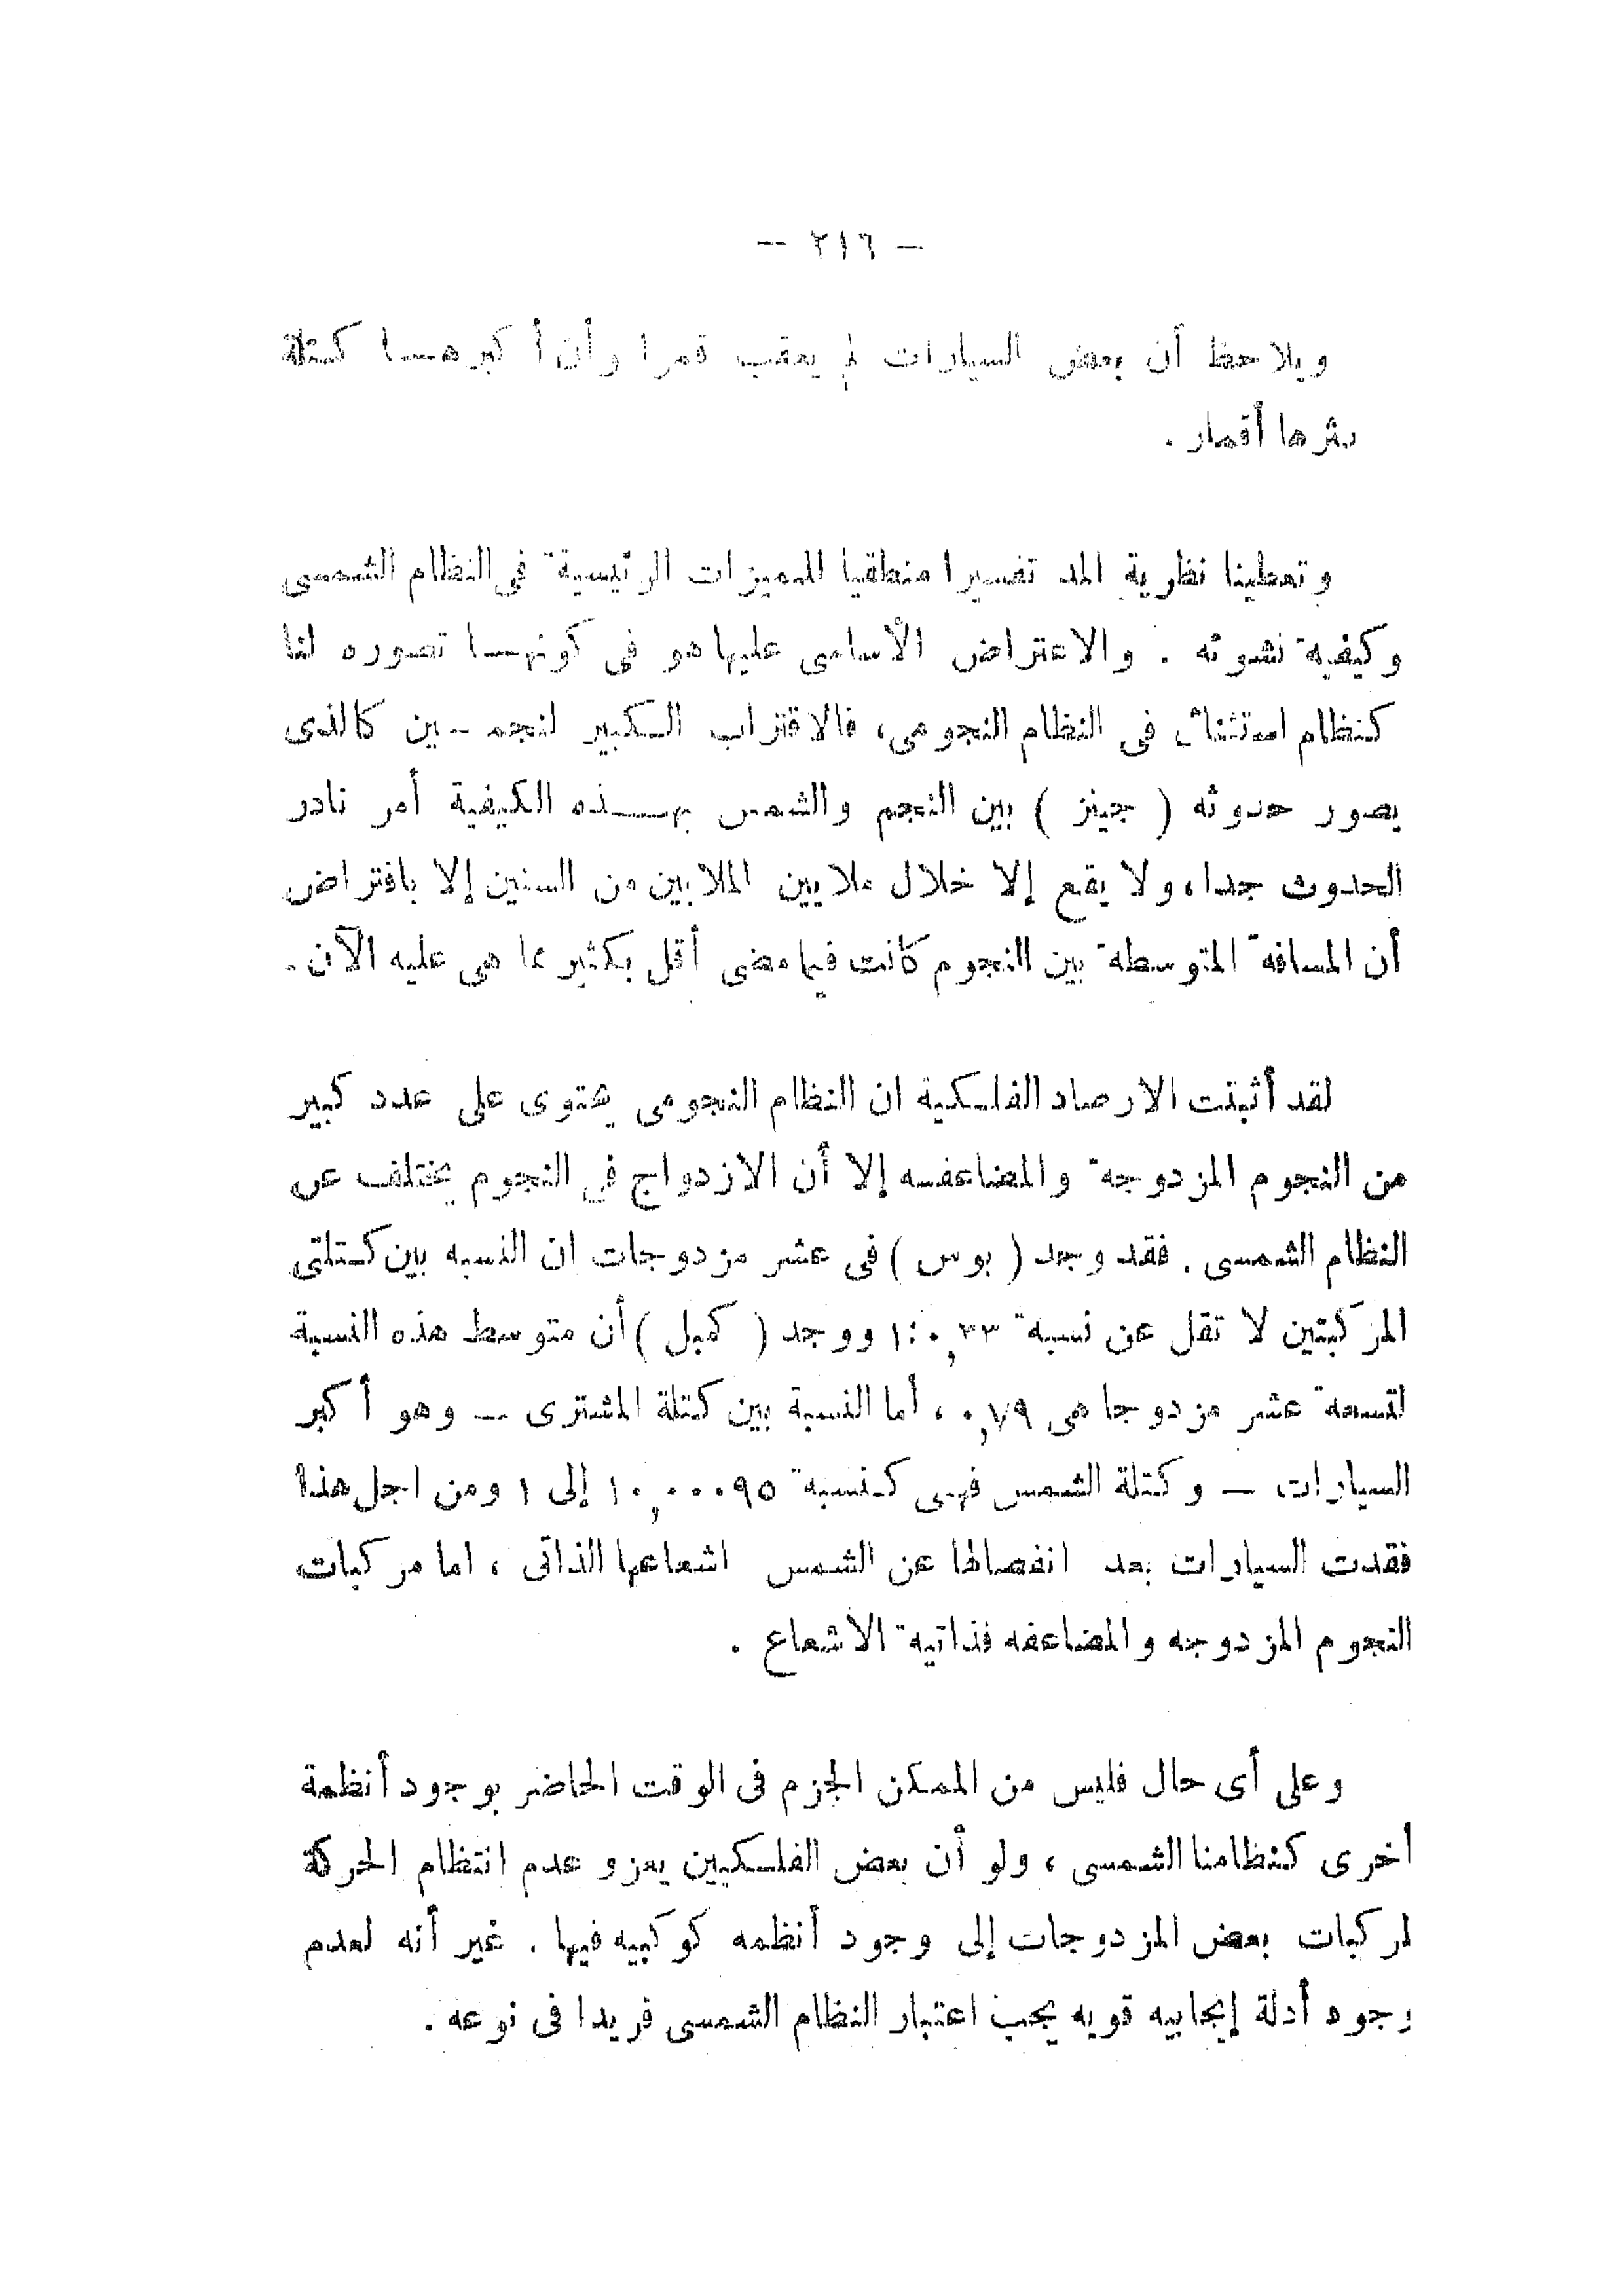 — ٢١٦ —
ويلاحظ أن بعض السيارات لم يعقب قمرا وأن أكبرهـــا كتلة
أقمار .
وتعطينا نظرية المد تفسيرا منطقيا للمميزات الرئيسية فى النظام الشمسى
وكيفية نشوئه . والاعتراض الأساسى عليها هو فى كونهــا تصوره لنا
كنظام استثنائى فى النظام النجومى، فالاقتراب الكبير لنجمـين كالذى
يصور حدوثه ( جينز ) بين النجم والشمس بهــذه الكيفية أمر نادر
الحدوث جدا، ولا يقع إلا خلال ملايين الملايين من السنين إلا بافتراض
أن المسافة المتوسطة بين النجوم كانت فيما مضى أقل بكثير عما هى عليه الآن .
لقد أثبتت الارصاد الفلكية ان النظام النجومى يحتوى على عدد كبير
من النجوم المزدوجة والمضاعفه إلا أن الازدواج فى النجوم يختلف عن
النظام الشمسى . فقد وجد ( بوس ) فى عشر مزدوجات ان النسبه بين كتلتى
المركبتين لا تقل عن نسبة ٠,٣٣ : ١ ووجد ( كمبل ) أن متوسط هذه النسبة
لتسعة عشر مزدوجا هى ٠,٧٩ ، أما النسبة بين كتلة المشترى — وهو أكبر
السيارات — وكتلة الشمس فهى كنسبة ٠,٠٠٠٩٥ إلى ١ ومن اجل هذا
فقدت السيارات بعد انفصالها عن الشمس اشعاعها الذاتى ، اما مركبات
النجوم المزدوجه والمضاعفه فذاتية الاشعاع .
وعلى أى حال فليس من الممكن الجزم فى الوقت الحاضر بوجود أنظمة
أخرى كنظامنا الشمسى ، ولو أن بعض الفلكيين يعزو عدم انتظام الحركة
لمركبات بعض المزدوجات إلى وجود أنظمه كوكبيه فيها . غير أنه لعدم
وجود أدلة إيجابيه قويه يجب اعتبار النظام الشمسى فريدا فى نوعه .